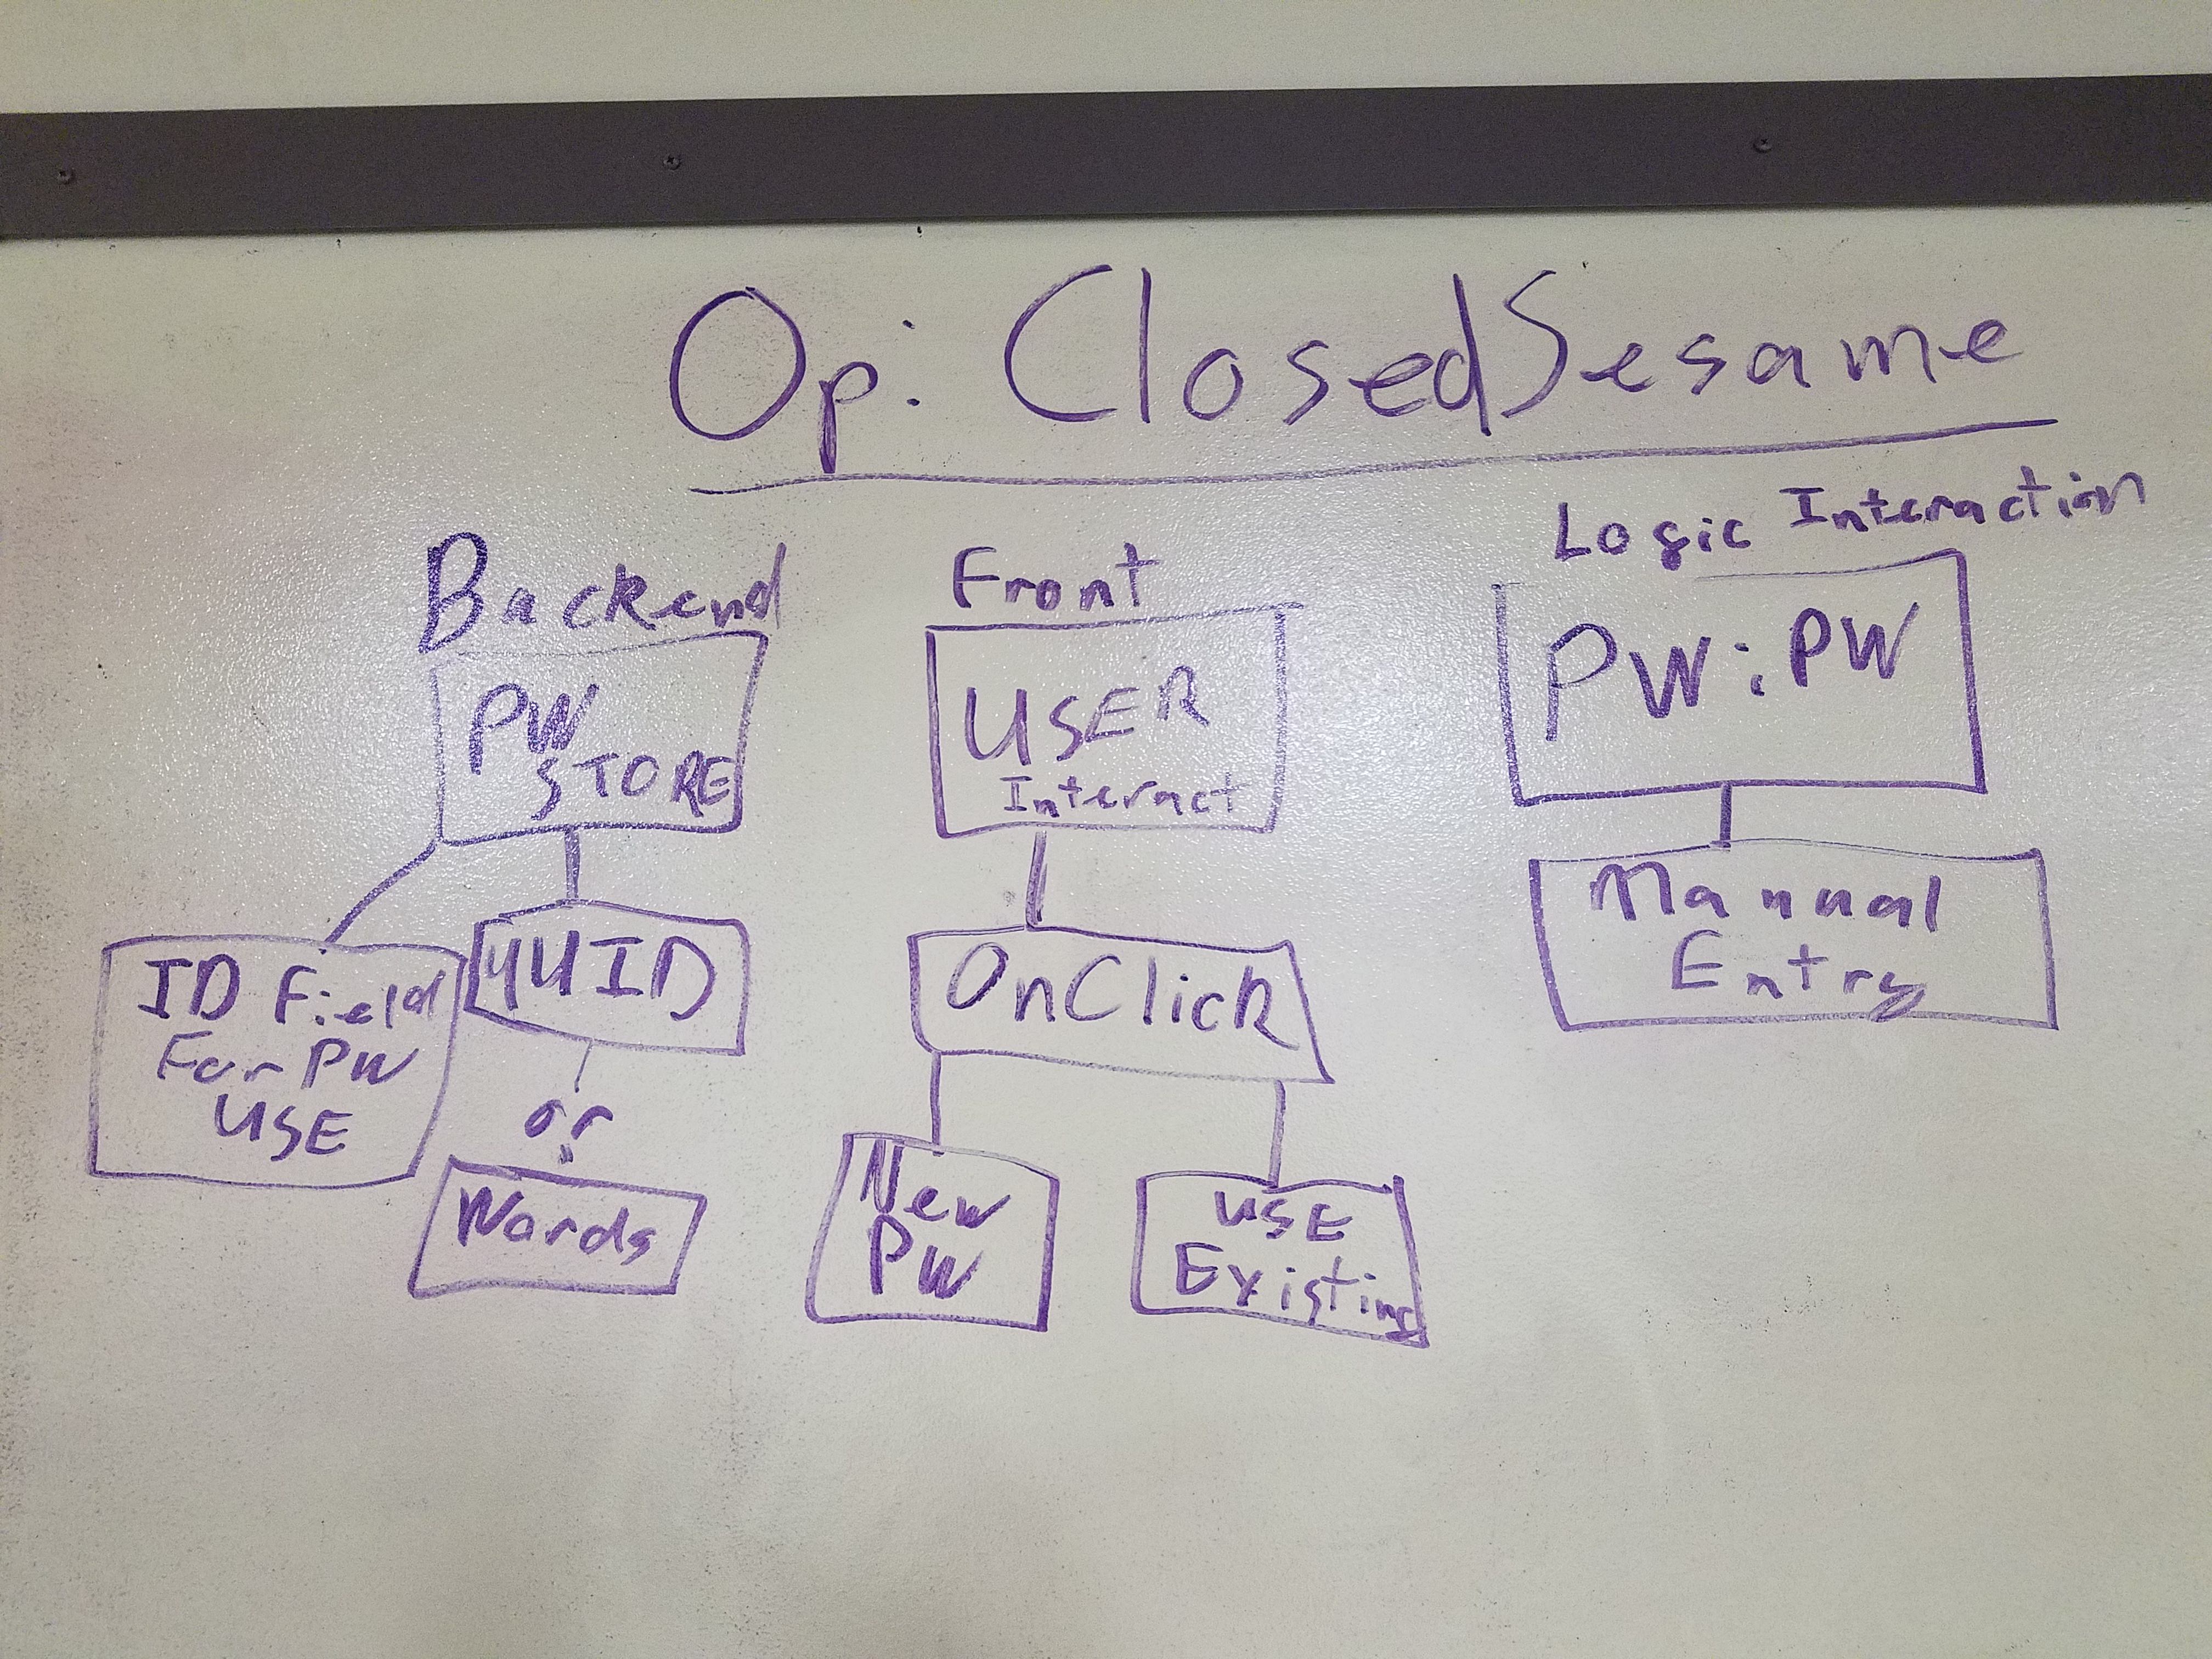 Op: ClosedSesame
Backend
PW
STORE
ID Field
For PW
USE
UUID
or
Words
Front
USER
Interact
OnClick
New
PW
USE
Existing
Logic Interaction
PW:PW
Manual
Entry